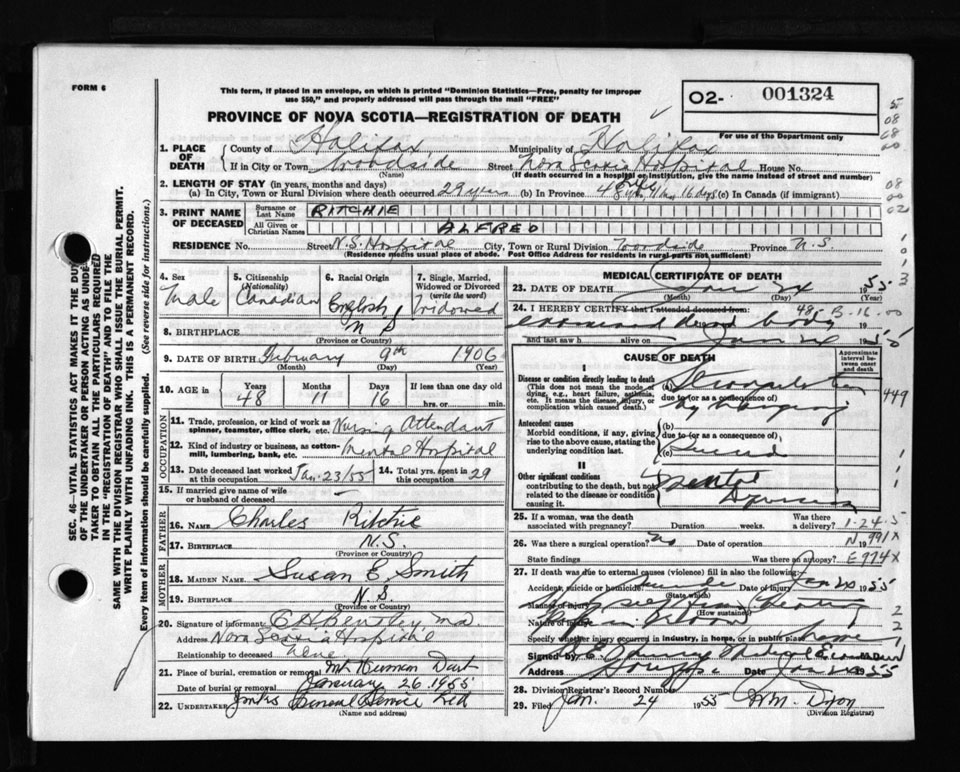 FORM 6
This form, if placed in an envelope, on which is printed "Dominion Statistics—Free, penalty for improper
use $50," and properly addressed will pass through the mail "FREE"
O2- 001324
For use of the Department only
PROVINCE OF NOVA SCOTIA—REGISTRATION OF DEATH
1. PLACE OF DEATH
County of Halifax Municipality of Halifax
If in City or Town Woodside Street Nova Scotia Hospital House No.
(Name) (If death occurred in a hospital or institution, give the name instead of street and number)
2. LENGTH OF STAY (in years, months and days)
(a) In City, Town or Rural Division where death occurred 29 years (b) In Province 48 yrs 11 m 16 days (c) In Canada (if immigrant)
3. PRINT NAME OF DECEASED
Surname or Last Name RITCHIE
All Given or Christian Names ALFRED
RESIDENCE No. Street N.S. Hospital City, Town or Rural Division Woodside Province N.S.
(Residence means usual place of abode. Post Office Address for residents in rural parts not sufficient)
4. Sex Male
5. Citizenship (Nationality) Canadian
6. Racial Origin English
7. Single, Married, Widowed or Divorced (write the word) Widowed
8. BIRTHPLACE N S
(Province or Country)
9. DATE OF BIRTH February 9th 1906
(Month) (Day) (Year)
10. AGE Years 48 Months 11 Days 16 If less than one day old hrs. or min.
OCCUPATION
11. Trade, profession, or kind of work as spinner, teamster, office clerk, etc. Nursing Attendant
12. Kind of industry or business, as cotton-mill, lumbering, bank, etc. Mental Hospital
13. Date deceased last worked at this occupation Jan. 23/55
14. Total yrs. spent in this occupation 29
15. If married give name of wife or husband of deceased —
FATHER
16. NAME Charles Ritchie
17. BIRTHPLACE N.S.
(Province or Country)
MOTHER
18. MAIDEN NAME Susan E Smith
19. BIRTHPLACE N.S.
(Province or Country)
20. Signature of informant
Address Nova Scotia Hospital
Relationship to deceased None
21. Place of burial, cremation or removal Mt Herman Dart
Date of burial or removal January 26 1955
22. UNDERTAKER Funeral Service Ltd
(Name and address)
MEDICAL CERTIFICATE OF DEATH
23. DATE OF DEATH Jan 24 1955
(Month) (Day) (Year)
24. I HEREBY CERTIFY that I attended deceased from:
examined dead body
and last saw h alive on Jan 24 1955
CAUSE OF DEATH
Approximate interval between onset and death
I
Disease or condition directly leading to death (a) Strangulation
(This does not mean the mode of dying, e.g., heart failure, asthenia, etc. It means the disease, injury, or complication which caused death.)
due to (or as a consequence of) by hanging
Antecedent causes
Morbid conditions, if any, giving rise to the above cause, stating the underlying condition last.
(b)
due to (or as a consequence of)
(c) Suicide
II
Other significant conditions
contributing to the death, but not related to the disease or condition causing it. mental Depression
25. If a woman, was the death associated with pregnancy? Duration weeks. Was there a delivery? 1-24-5
26. Was there a surgical operation? no Date of operation 19 N991X
State findings Was there an autopsy? E974X
27. If death was due to external causes (violence) fill in also the following:
Accident, suicide or homicide? Suicide Date of injury Jan 24 1955
(State which)
Manner of injury
(How sustained)
Nature of injury
Specify whether injury occurred in industry, in home, or in public place home
Signed by Medical Examiner
Address Date Jan 1955
28. Division Registrar's Record Number
29. Filed Jan. 24 1955 Wm. Dixon
(Division Registrar)
SEC. 46 VITAL STATISTICS ACT MAKES IT THE DUTY
OF THE UNDERTAKER OR PERSON ACTING AS UNDERTAKER
TO OBTAIN ALL THE PARTICULARS REQUIRED
IN THE "REGISTRATION OF DEATH" AND TO FILE THE
SAME WITH THE DIVISION REGISTRAR WHO SHALL ISSUE THE BURIAL PERMIT.
WRITE PLAINLY WITH UNFADING INK. THIS IS A PERMANENT RECORD.
Every item of information should be carefully supplied. (See reverse side for instructions.)